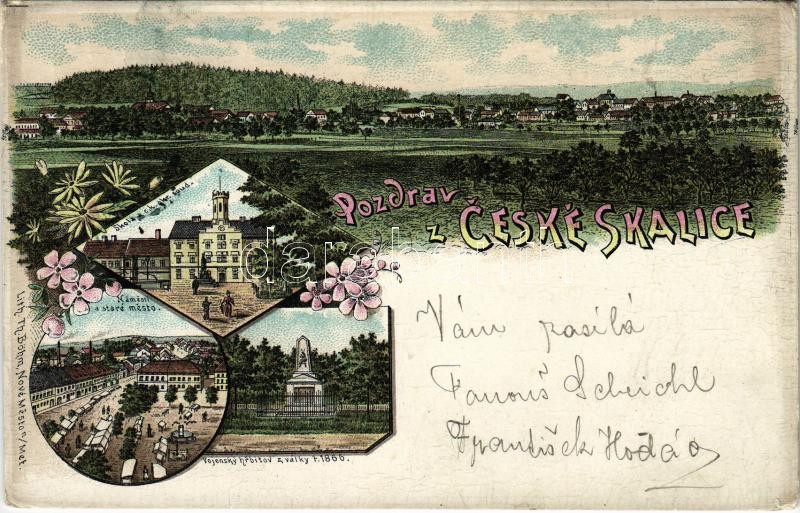 Pozdrav
z ČESKÉ SKALICE
Škola
Náměstí
a staré město.
Vojenský hřbitov z války r. 1866.
Lith. Th. Böhm, Nové Město n/Met
darabanth
Vám posílá
Fanouš
František